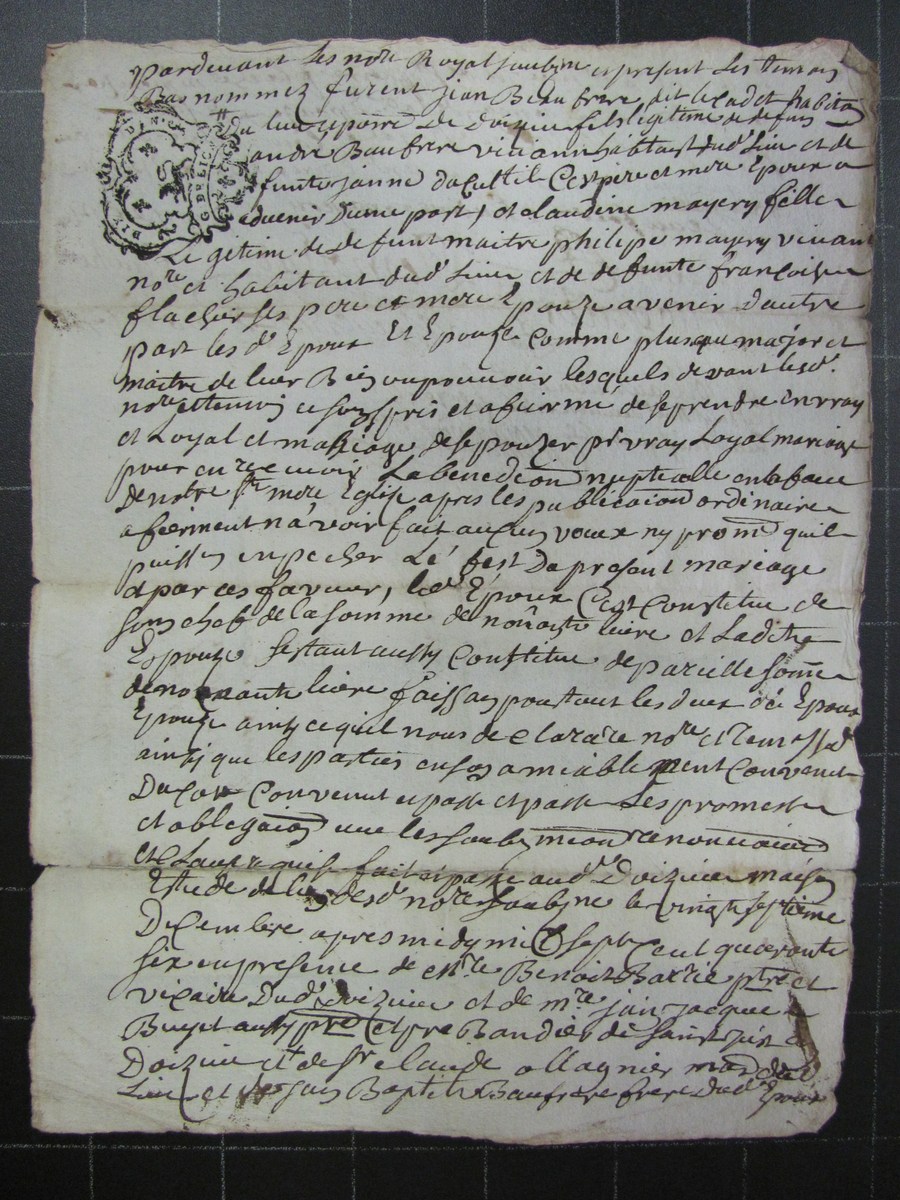 Pardevant les nore Royal soubne et present les temoins
Bas nommez furent jean Beaufrere dit le cadet habita
du lieu et parre De Doizieu fils legitime de defunt
andre Baufrere vivant habitant dud lieu et de
funte janne Ducultil Ces pere et mere Epoux a
advenir Dune part, et claudine mayery fille
Le getime de Defunt maitre philipe mayery vivant
nore et habitant dud lieu et de defunte françoise
flacher ses pere et mere Epouze avenir dautre
part les ds Epoux Et Epouze comme plus que major et
maitre de leur Bien ou pouvoir lesquels devant lesd.
nore et temoin ce sont pris et afiermé de se prendre en vray
et Loyal et mariage de sepouzer pr vray Loyal mariage
pour en recevoir La benediction nuptialle en la face
de notre ste mere Eglise apres les publication ordinaire
afierment n'avoir fait aucun voeux ny prom quil
puisse enpecher Lé fest Du present mariage
et par ces faveur, led Epoux Cest Constitue de
son chef de la somme de nonante livre et Ladite
Epouze sestant aussy Constitue de pareille somme
de nonante livre faissan pour tout les deux dé Epoux
Epouze ainsy ce quil nous declare nore et temoins
ainsy que les parties en son amiablement Convenet
Convenut et passe et passe Les promesse
et obligation une les soubmion renonciaion
et Laur fait et passe aud Doizieu maison
Estude de desd nore soubne le vingt septieme
Decembre apres midy mil sept Cent quarante
six en presence de Benoit Barrie ptre et
vicaire Dud doizieu et de mre jean jacque
aussy pre et de saint just
Doizieu et de sr claude ollagnier mard dud
Lieu et jean Baptiste Baufrere frere dud Epoux